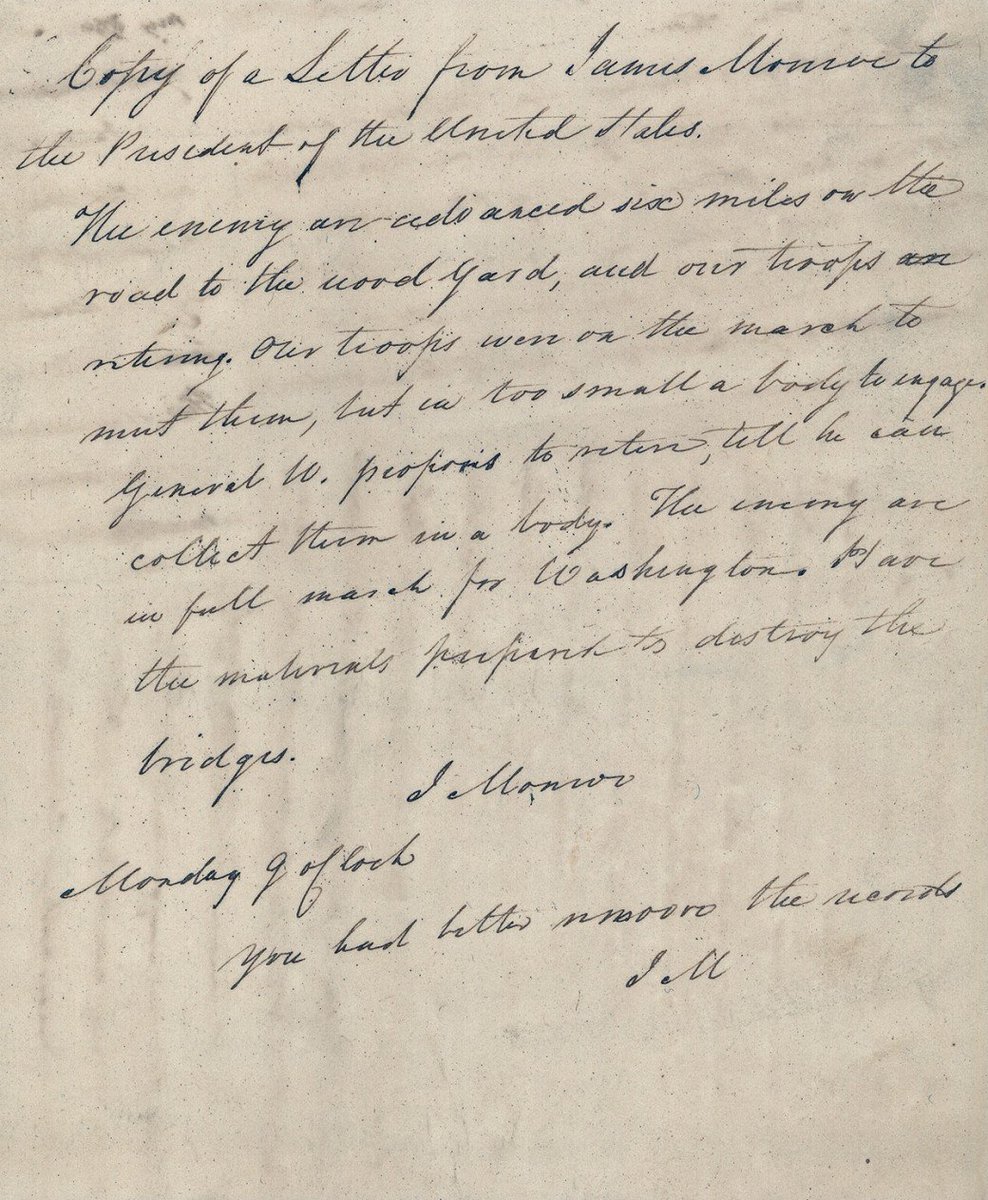 Copy of a Letter from James Monroe to
the President of the United States.
The enemy are advanced six miles on the
road to the wood Yard, and our troops are
retiring. Our troops were on the march to
meet them, but in too small a body to engage.
General W. proposes to retire, till he can
collect them in a body. The enemy are
in full march for Washington. Have
the materials prepared to destroy the
bridges.
J Monroe
Monday 9 oClock
You had better remoove the records
J M